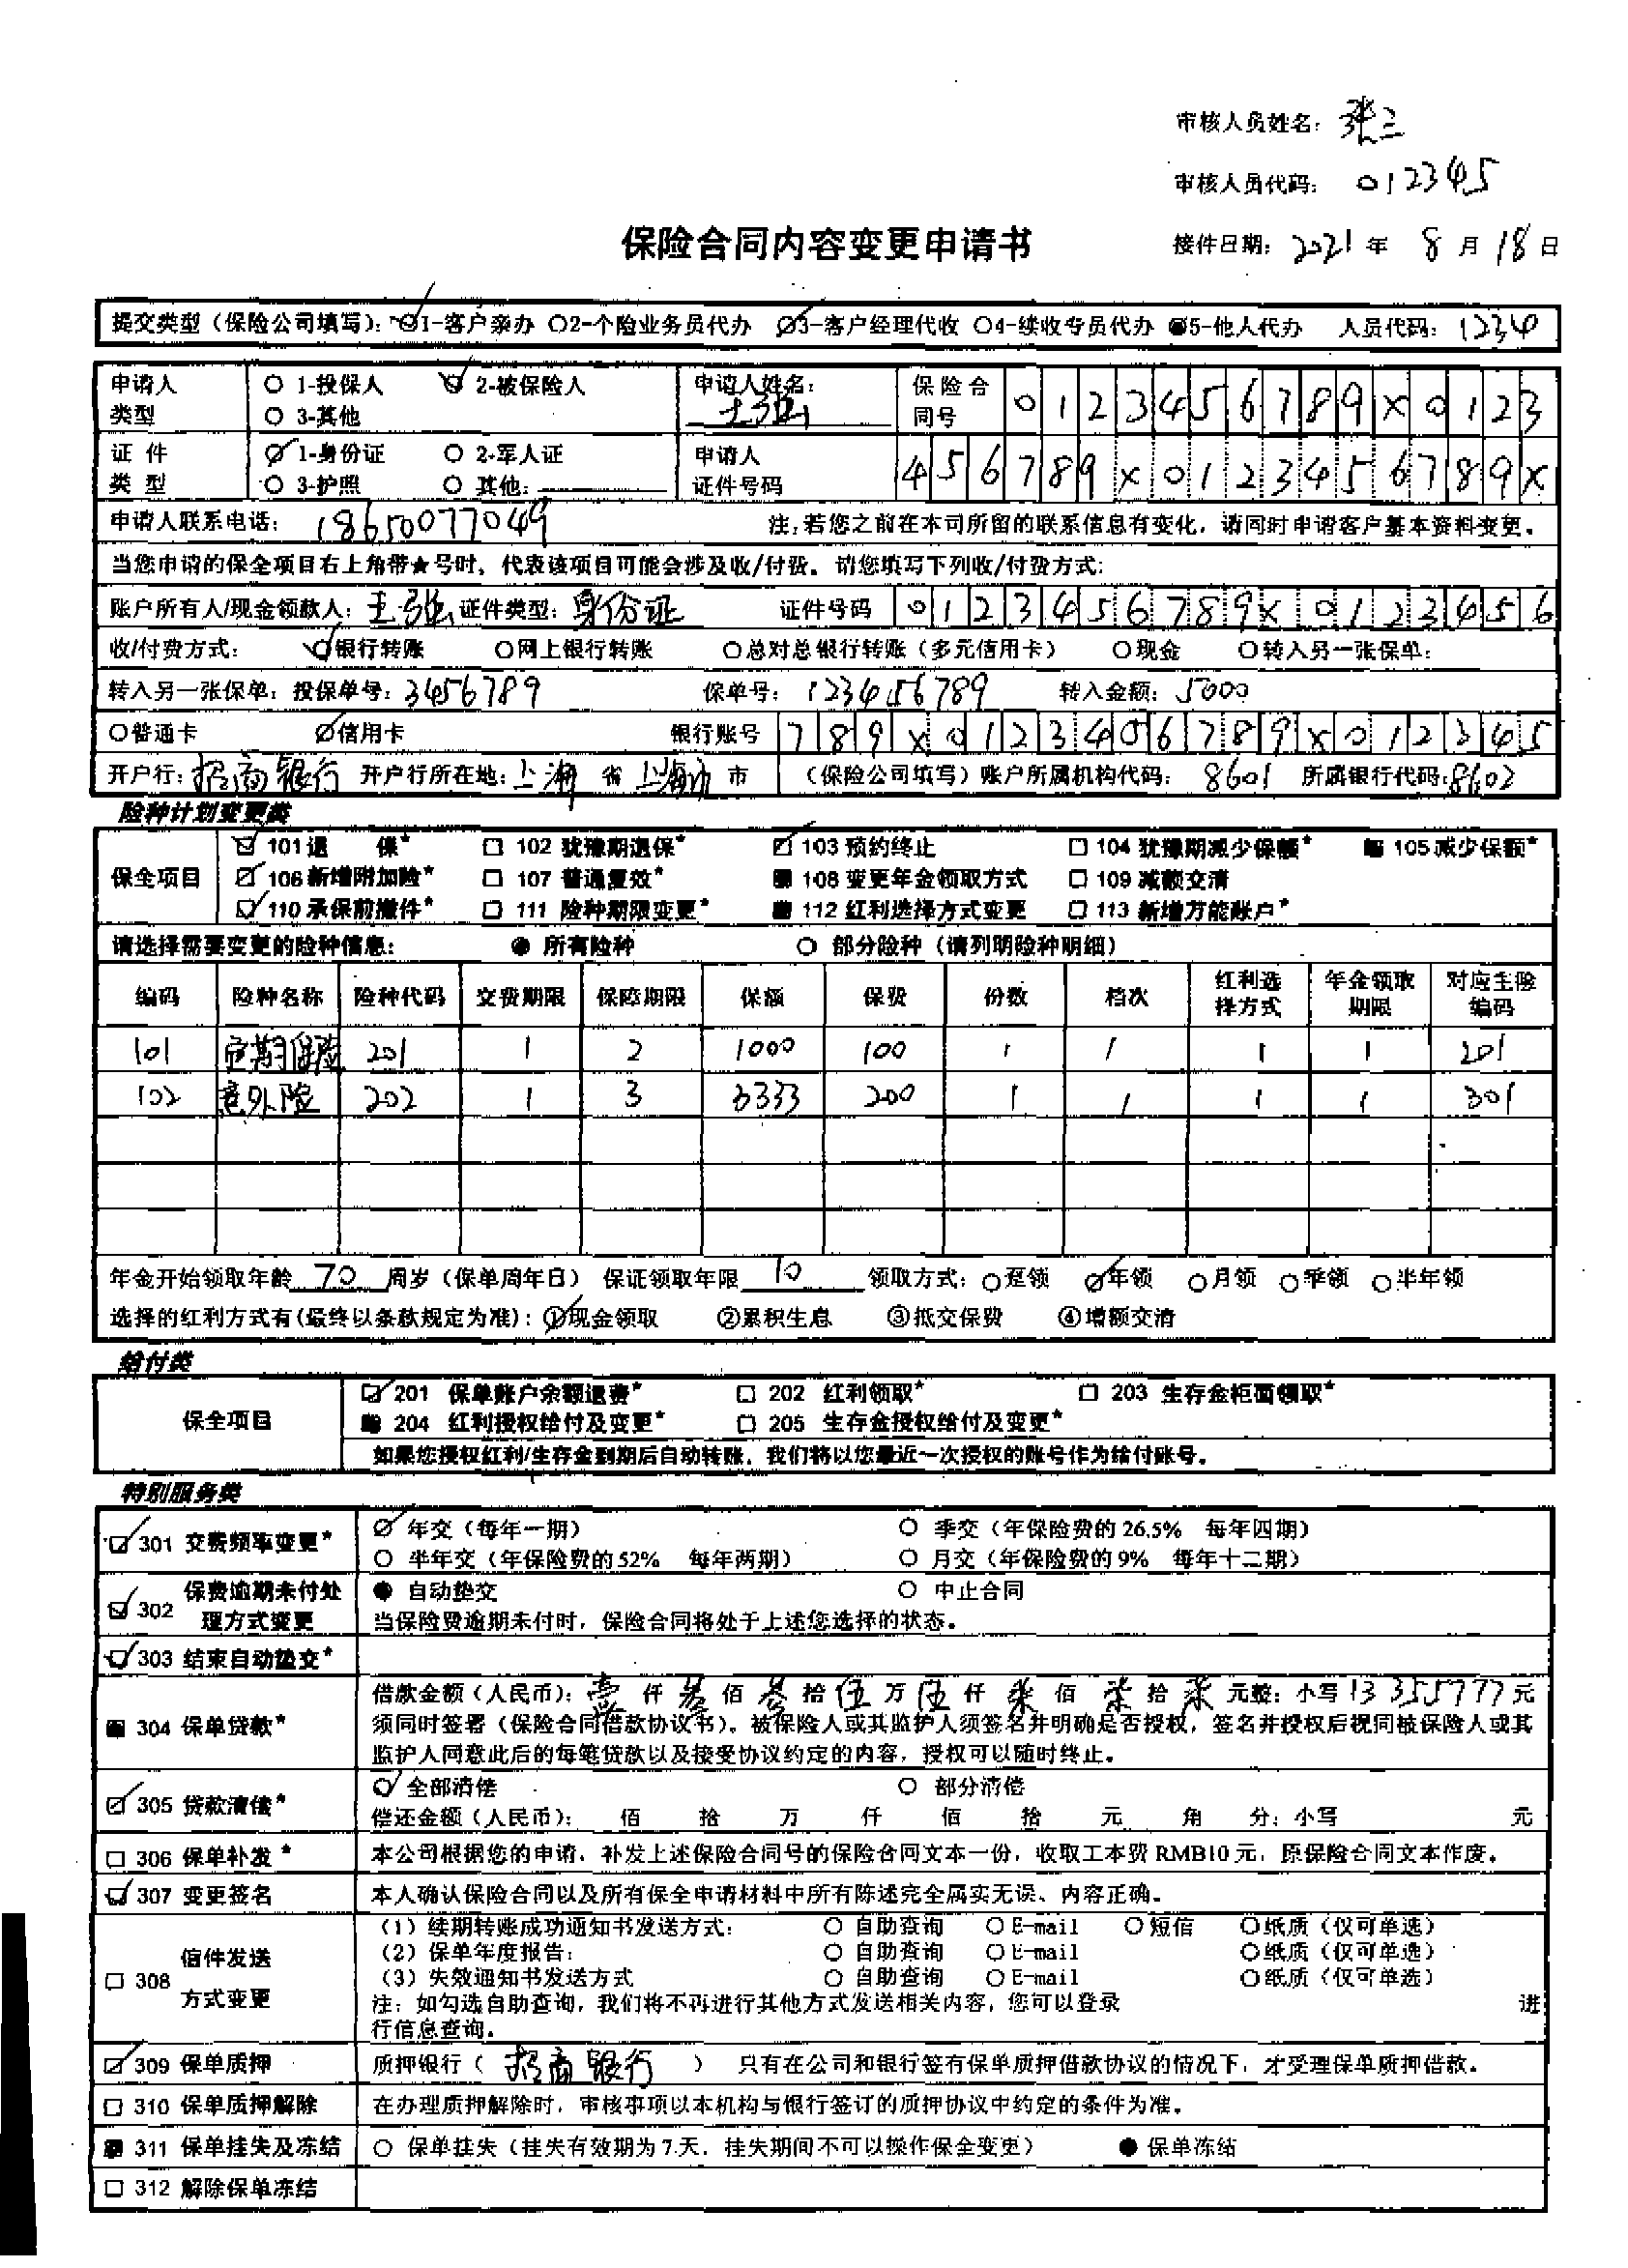 审核人员姓名：张三
审核人员代码：012345
保险合同内容变更申请书
接件日期：2021年 8月18日
提交类型（保险公司填写）：1-客户亲办 ○2-个险业务员代办 3-客户经理代收 ○4-续收专员代办 ●5-他人代办 人员代码：1234
申请人类型 ○ 1-投保人 2-被保险人 ○ 3-其他 申请人姓名： 王张 保险合同号 0123456789X0123
证件类型 1-身份证 ○ 2-军人证 ○ 3-护照 ○ 其他： 申请人证件号码 456789X0123456789X
申请人联系电话：18650077049 注：若您之前在本司所留的联系信息有变化，请同时申请客户基本资料变更。
当您申请的保全项目右上角带★号时，代表该项目可能会涉及收/付费。请您填写下列收/付费方式：
账户所有人/现金领款人：王张 证件类型：身份证 证件号码 0123456789X0123456
收/付费方式： 银行转账 ○网上银行转账 ○总对总银行转账（多元信用卡） ○现金 ○转入另一张保单：
转入另一张保单：投保单号：3456789 保单号：123456789 转入金额：5000
○普通卡 信用卡 银行账号 789X0123456789X012345
开户行：招商银行 开户行所在地：上海 省 上海 市 （保险公司填写）账户所属机构代码：8601 所属银行代码：8602
险种计划变更类
保全项目
101 退 保* □ 102 犹豫期退保* 103 预约终止 □ 104 犹豫期减少保额* ■ 105 减少保额*
106 新增附加险* □ 107 普通复效* ■ 108 变更年金领取方式 □ 109 减额交清
110 承保前撤件* □ 111 险种期限变更* ■ 112 红利选择方式变更 □ 113 新增万能账户*
请选择需要变更的险种信息： ● 所有险种 ○ 部分险种（请列明险种明细）
编码 险种名称 险种代码 交费期限 保障期限 保额 保费 份数 档次 红利选择方式 年金领取期限 对应主险编码
101 定期保险 201 1 2 1000 100 1 1 1 1 201
102 意外险 202 1 3 3333 200 1 1 1 1 301
年金开始领取年龄 70 周岁（保单周年日） 保证领取年限 10 领取方式：○趸领 年领 ○月领 ○季领 ○半年领
选择的红利方式有(最终以条款规定为准)：①现金领取 ②累积生息 ③抵交保费 ④增额交清
给付类
保全项目
201 保单账户余额退费* □ 202 红利领取* □ 203 生存金柜面领取*
■ 204 红利授权给付及变更* □ 205 生存金授权给付及变更*
如果您授权红利/生存金到期后自动转账，我们将以您最近一次授权的账号作为给付账号。
特别服务类
301 交费频率变更* 年交（每年一期） ○ 季交（年保险费的 26.5% 每年四期）
○ 半年交（年保险费的 52% 每年两期） ○ 月交（年保险费的 9% 每年十二期）
302 保费逾期未付处理方式变更 ● 自动垫交 ○ 中止合同
当保险费逾期未付时，保险合同将处于上述您选择的状态。
303 结束自动垫交*
■ 304 保单贷款* 借款金额（人民币）：壹 仟 叁 佰 叁 拾 伍 万 伍 仟 柒 佰 柒 拾 柒 元整；小写 13355777 元
须同时签署（保险合同借款协议书）。被保险人或其监护人须签名并明确是否授权，签名并授权后视同被保险人或其
监护人同意此后的每笔贷款以及接受协议约定的内容，授权可以随时终止。
305 贷款清偿* 全部清偿 ○ 部分清偿
偿还金额（人民币）： 佰 拾 万 仟 佰 拾 元 角 分；小写 元
□ 306 保单补发 * 本公司根据您的申请，补发上述保险合同号的保险合同文本一份，收取工本费 RMB10 元，原保险合同文本作废。
307 变更签名 本人确认保险合同以及所有保全申请材料中所有陈述完全属实无误、内容正确。
□ 308 信件发送方式变更
（1）续期转账成功通知书发送方式： ○ 自助查询 ○ E-mail ○ 短信 ○纸质（仅可单选）
（2）保单年度报告： ○ 自助查询 ○ E-mail ○纸质（仅可单选）
（3）失效通知书发送方式 ○ 自助查询 ○ E-mail ○纸质（仅可单选）
注：如勾选自助查询，我们将不再进行其他方式发送相关内容，您可以登录 进
行信息查询。
309 保单质押 质押银行（ 招商银行 ） 只有在公司和银行签有保单质押借款协议的情况下，才受理保单质押借款。
□ 310 保单质押解除 在办理质押解除时，审核事项以本机构与银行签订的质押协议中约定的条件为准。
■ 311 保单挂失及冻结 ○ 保单挂失（挂失有效期为 7 天，挂失期间不可以操作保全变更） ● 保单冻结
□ 312 解除保单冻结